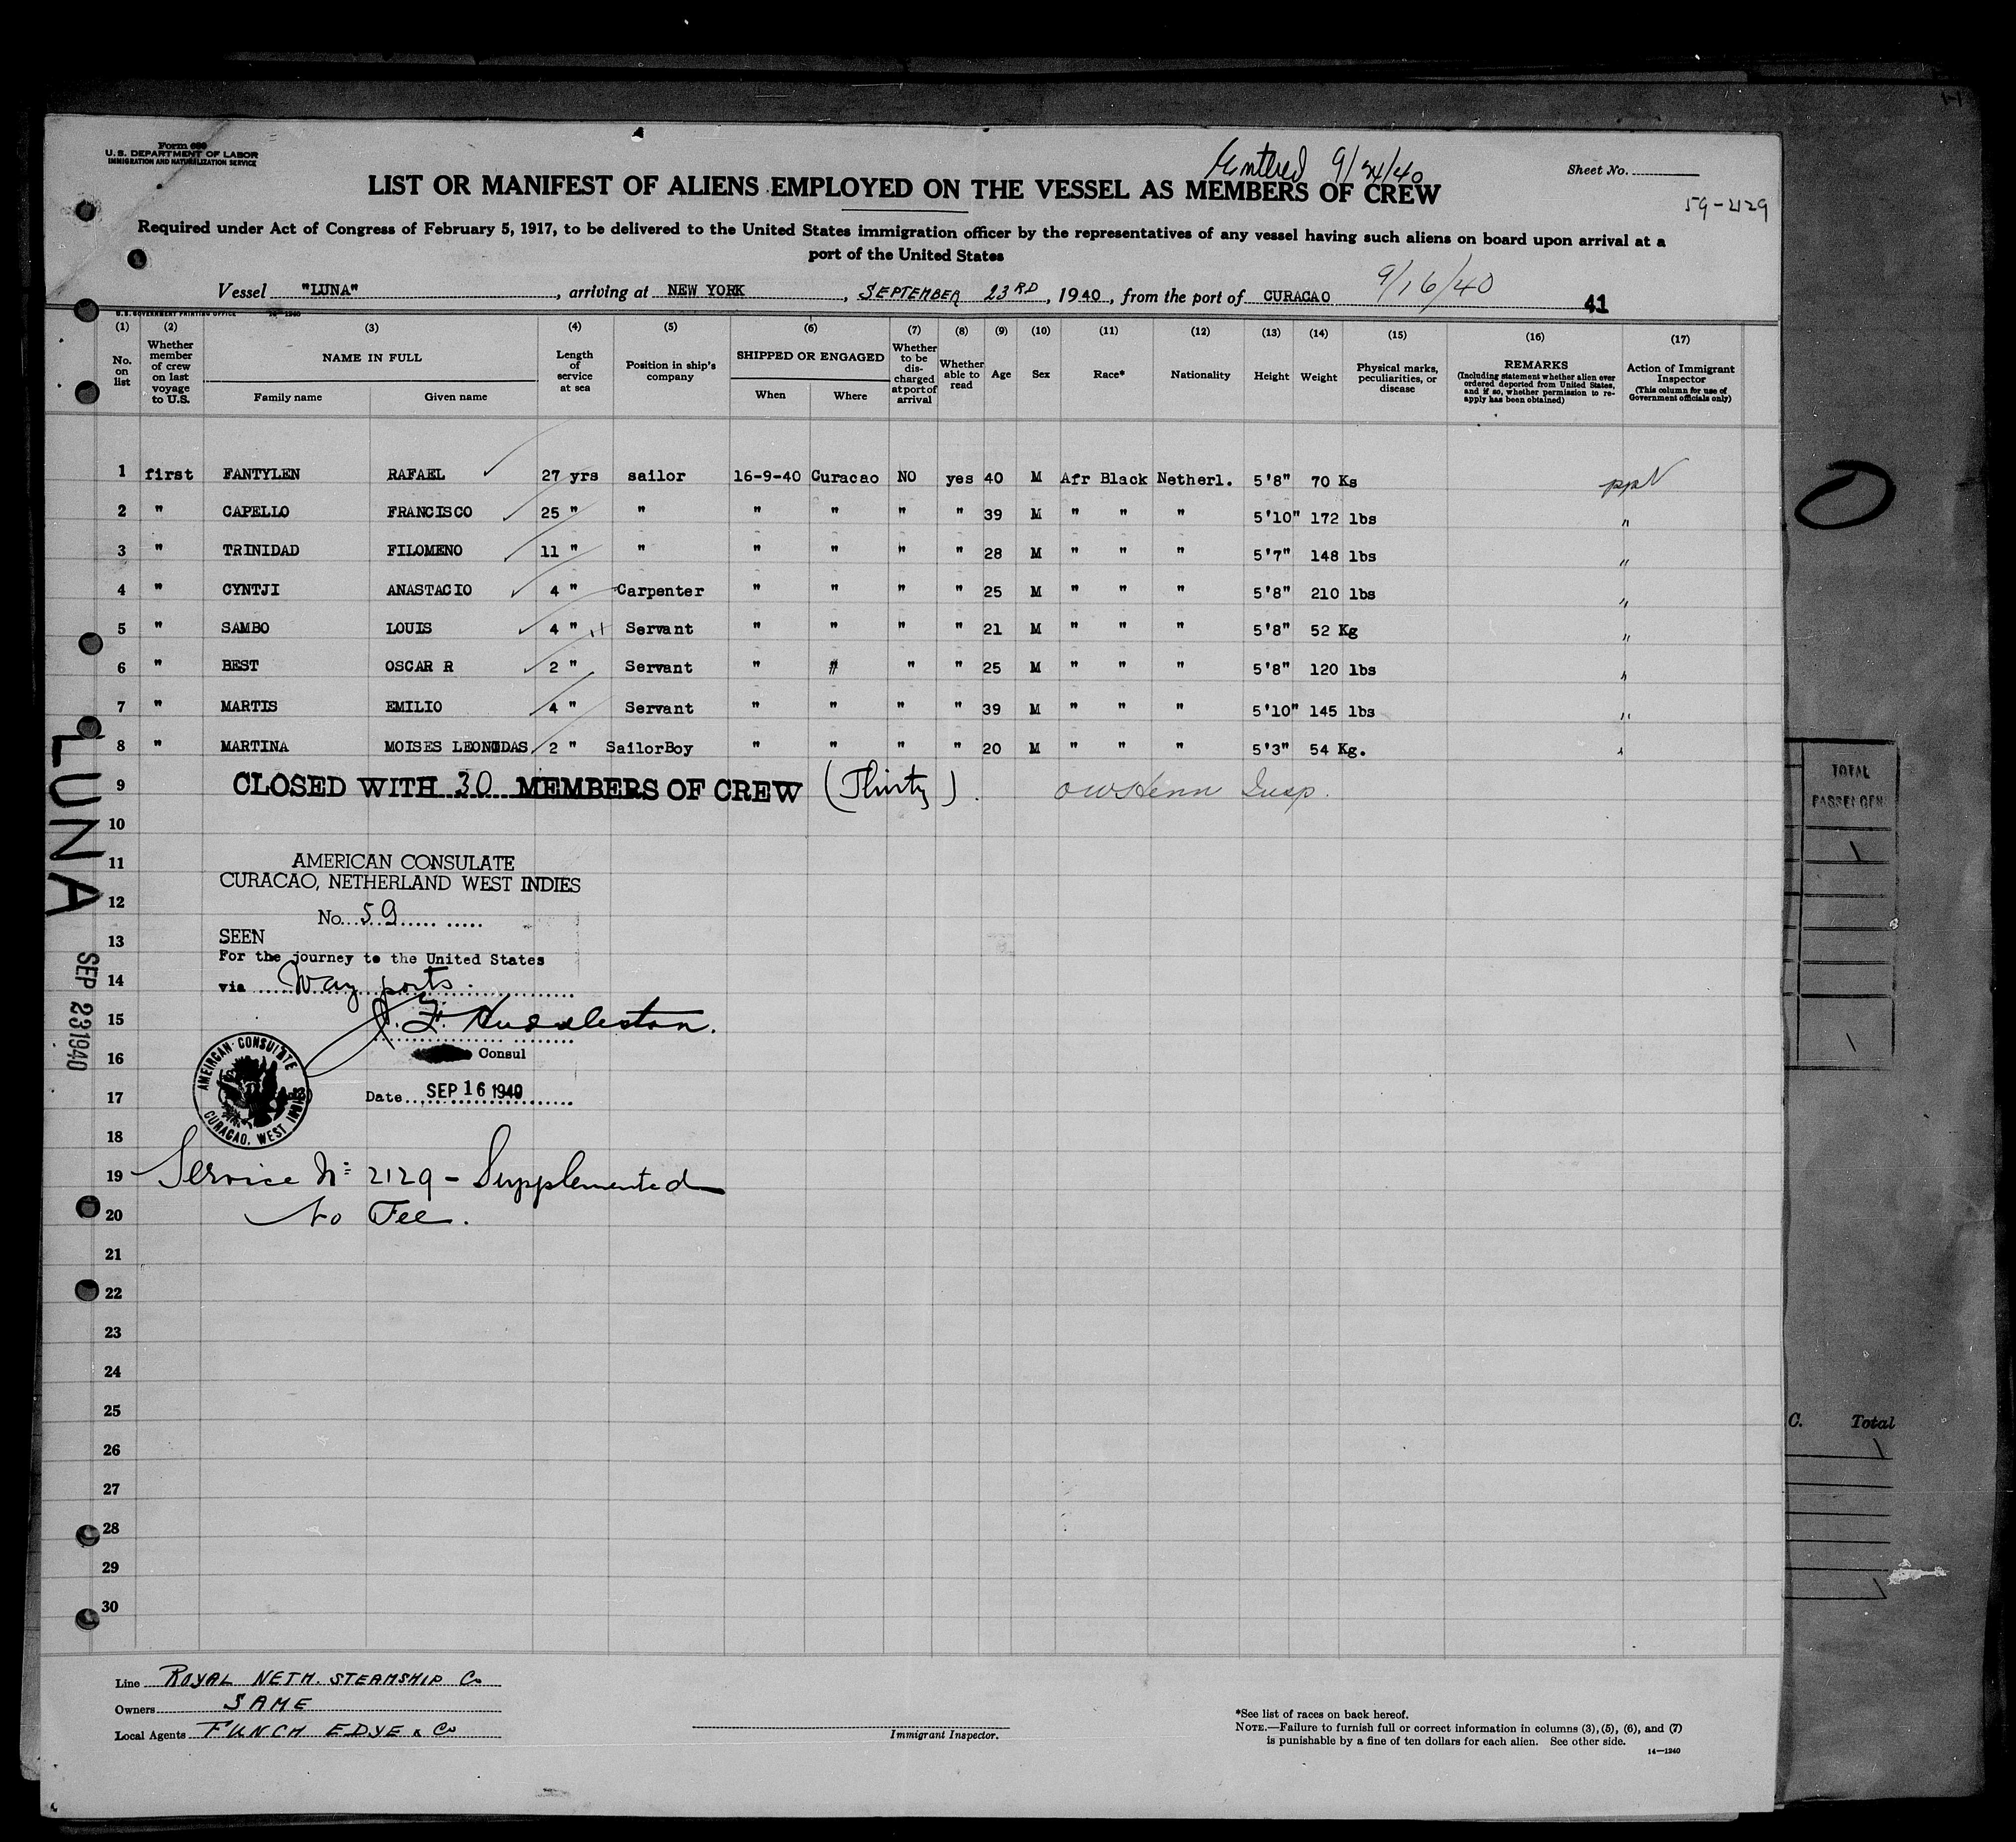 Form 689
U. S. DEPARTMENT OF LABOR
IMMIGRATION AND NATURALIZATION SERVICE
Entered 9/24/40
Sheet No.
LIST OR MANIFEST OF ALIENS EMPLOYED ON THE VESSEL AS MEMBERS OF CREW
59-2129
Required under Act of Congress of February 5, 1917, to be delivered to the United States immigration officer by the representatives of any vessel having such aliens on board upon arrival at a
port of the United States
Vessel "LUNA", arriving at NEW YORK, SEPTEMBER 23RD, 1940, from the port of CURACAO 9/16/40 41
U.S. GOVERNMENT PRINTING OFFICE
(1) (2) (3) (4) (5) (6) (7) (8) (9) (10) (11) (12) (13) (14) (15) (16) (17)
No. on list
Whether member of crew on last voyage to U.S.
NAME IN FULL
Family name Given name
Length of service at sea
Position in ship's company
SHIPPED OR ENGAGED
When Where
Whether to be discharged at port of arrival
Whether able to read
Age
Sex
Race*
Nationality
Height
Weight
Physical marks, peculiarities, or disease
REMARKS
(Including statement whether alien ever ordered deported from United States, and if so, whether permission to reapply has been obtained)
Action of Immigrant Inspector
(This column for use of Government officials only)
1 first FANTYLEN RAFAEL 27 yrs sailor 16-9-40 Curacao NO yes 40 M Afr Black Netherl. 5'8" 70 Ks
2 " CAPELLO FRANCISCO 25 " " " " " " 39 M " " " 5'10" 172 lbs "
3 " TRINIDAD FILOMENO 11 " " " " " " 28 M " " " 5'7" 148 lbs "
4 " CYNTJI ANASTACIO 4 " Carpenter " " " " 25 M " " " 5'8" 210 lbs "
5 " SAMBO LOUIS 4 " Servant " " " " 21 M " " " 5'8" 52 Kg "
6 " BEST OSCAR R 2 " Servant " " " " 25 M " " " 5'8" 120 lbs "
7 " MARTIS EMILIO 4 " Servant " " " " 39 M " " " 5'10" 145 lbs "
8 " MARTINA MOISES LEONIDAS 2 " SailorBoy " " " " 20 M " " " 5'3" 54 Kg. "
9 CLOSED WITH 30 MEMBERS OF CREW (Thirty). Insp.
10
11 AMERICAN CONSULATE
CURACAO, NETHERLAND WEST INDIES
12 No. 59
13 SEEN
For the journey to the United States
14 via Way ports.
15 J. F. Huddleston.
16 Consul
AMEIRCAN CONSULATE CURACAO, WEST INDIES
17 Date SEP 16 1940
18
19 Service No 2129 - Supplemented
20 No Fee.
21
22
23
24
25
26
27
28
29
30
LUNA
SEP 23 1940
Line ROYAL NETH. STEAMSHIP Co
Owners SAME
Local Agents FUNCH EDYE & Co
Immigrant Inspector.
*See list of races on back hereof.
NOTE.—Failure to furnish full or correct information in columns (3), (5), (6), and (7)
is punishable by a fine of ten dollars for each alien. See other side.
14—1240
TOTAL
PASSENGER
C. Total